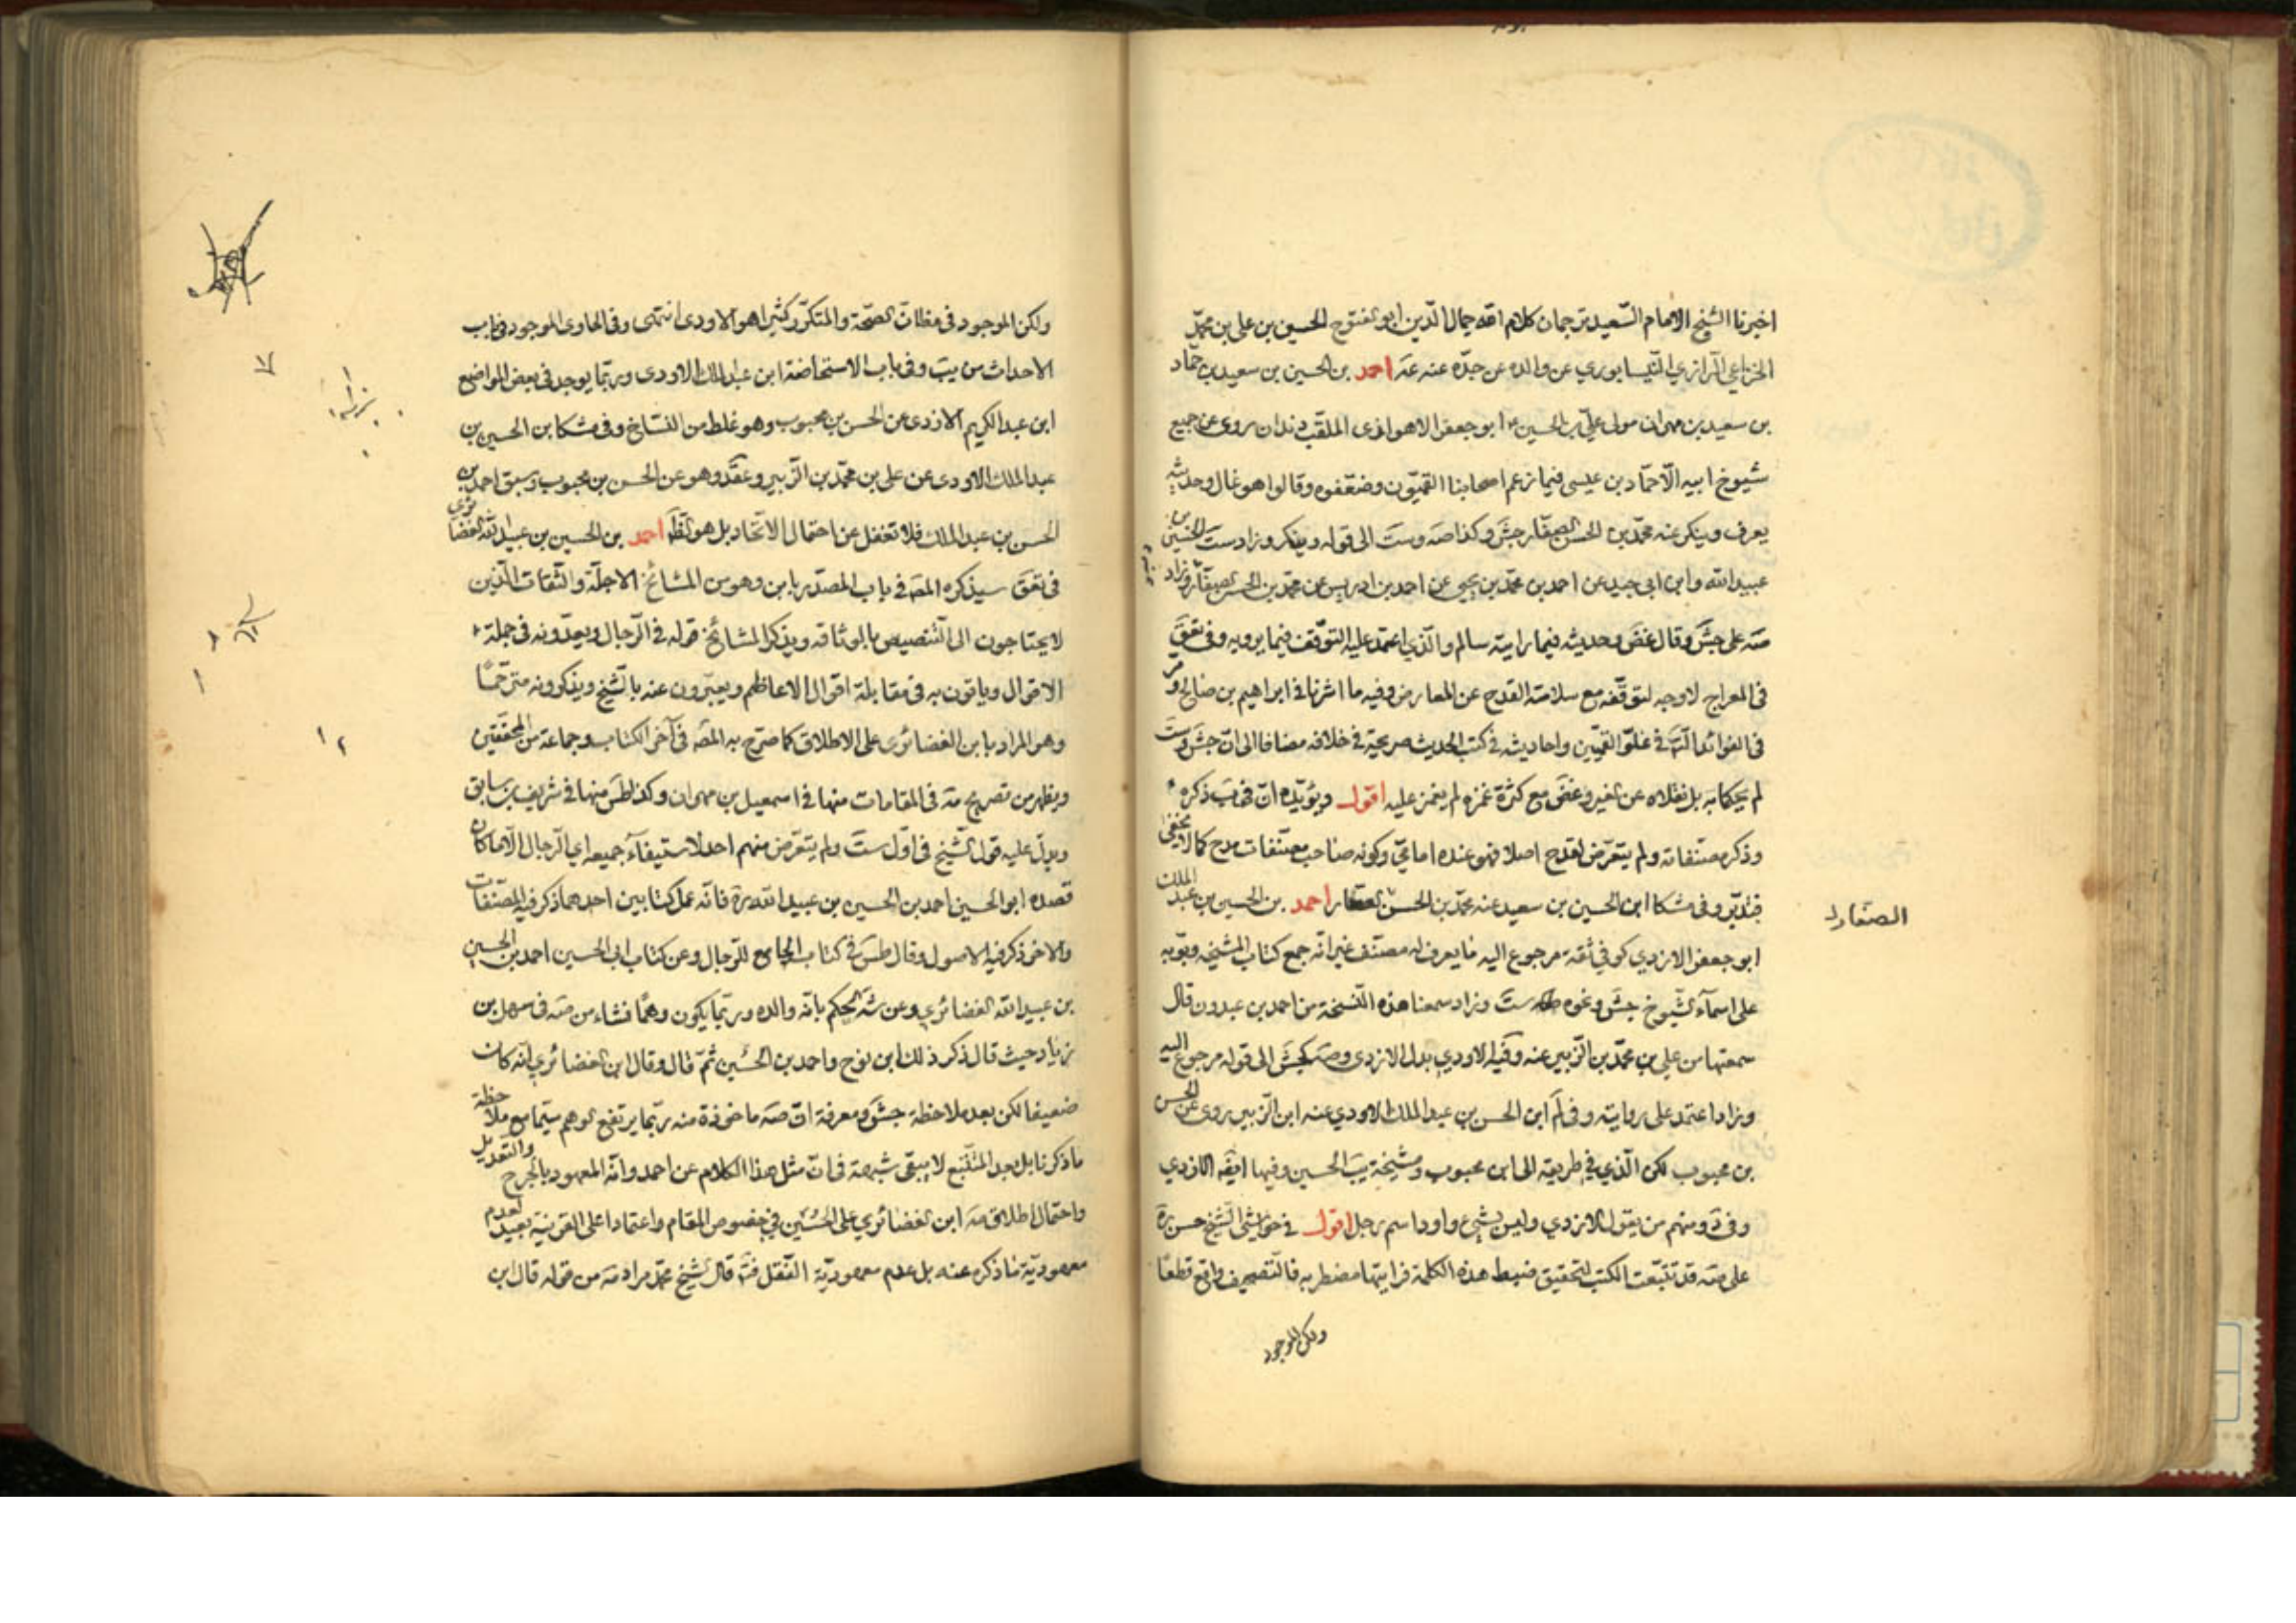 اخبرنا الشيخ الامام السعيد ترجمان كلام الله جمال الدين ابو الفتوح الحسين بن علي بن محمد
الخزاعي الرازي النيسابوري عن والده عن جده عنه عه احمد بن الحسين بن سعيد بن حماد
بن سعيد بن مهران مولى علي بن الحسين ع ابو جعفر الاهوازى الملقب دندان روى عن جميع
شيوخ ابيه الا حماد بن عيسى فيما زعم اصحابنا القميون وضعفوه وقالوا هو غال وحديثه
يعرف وينكر عنه محمد بن الحسن الصفار جش وكذا صه وست الى قوله وينكر وزاد ست الحسين بن
عبيد الله وابن ابي جيد عن احمد بن محمد بن يحيى عن احمد بن ادريس عن محمد بن الحسن الصفار وزاد
صه على جش وقال غض وحديثه فيما رايته سالم والذي اعتمد عليه التوقف فيما يرويه وفي تعق
في المعراج لا وجه لتوقفه مع سلامته القدح عن المعارض وفيه ما اشرنا في ابراهيم بن صالح ومر
في الفوائد التأمل في غلو القميين واحاديثه في كتب الحديث صريحة في خلافه مضافا الى ان جش وست
لم يحكما به بل نقلاه عن الغير وغض مع كثرة غمزه لم يغمز عليه اقول ويؤيده ان في ب ذكره
وذكر مصنفاته ولم يتعرض لقدح اصلا فهو عنده امامي وكونه صاحب مصنفات مدح كما لا يخفى
فتدبر وفي مشكا ابن الحسين بن سعيد عنه محمد بن الحسن الصفار احمد بن الحسين بن عبد الملك
الصفار
ابو جعفر الازدي كوفي ثقة مرجوع اليه ما يعرف له مصنف غير انه جمع كتاب المشيخة وبوبه
على اسماء الشيوخ جش ونحوه ست وزاد سمعنا هذه النسخة من احمد بن عبدون قال
سمعتها من علي بن محمد بن الزبير عنه وفيه الاودي بدل الازدي وصه كجش الى قوله مرجوع اليه
وزاد اعتمد على روايته وفي لم ابن الحسن بن عبد الملك الاودي عنه ابن الزبير روى عن الحسن
بن محبوب لكن الذي في طريقه الى ابن محبوب ومشيخة يب الحسين وفيها ايضه الازدي
وفي د ومنهم من يقول الازدي وليس بشيء واود اسم رجل اقول في حواشي الشيخ حسن ره
على صه قد تتبعت الكتب لتحقيق ضبط هذه الكلمة فرايتها مضطربه فالتصحيف واقع قطعا
ولكن الموجود
ولكن الموجود في مظان الصحة والمتكرر كثيرا هو الاودى انتهى وفي الحاوى الموجود في باب
الاحداث من يب وفي باب الاستحاضة ابن عبد الملك الاودى وربما يوجد في بعض المواضع
ابن عبد الكريم الازدى عن الحسن بن محبوب وهو غلط من النساخ وفي مشكا بن الحسين بن
عبد الملك الاودى عن علي بن محمد بن الزبير وعقد وهو عن الحسن بن محبوب وسبق احمد بن
الحسن بن عبد الملك فلا تغفل عن احتمال الاتحاد بل هو الظ احمد بن الحسين بن عبيد الله الغضائري
في تعق سيذكره المص في باب المصدر بابن وهو من المشائخ الاجلة والثقات الذين
لا يحتاجون الى التنصيص بالوثاقه ويذكر المشائخ قوله في الرجال ويعدونه في جملة
الاقوال وياتون به في مقابلة اقوال الاعاظم ويعبرون عنه بالشيخ ويذكرونه مترحما
وهو المراد بابن الغضائرى على الاطلاق كما صرح به المص في آخر الكتاب وجماعة من المحققين
ويظهر من تصريح صه في المقامات منها في اسمعيل بن مهران وكذا طس منها في شريف بن سابق
ويدل عليه قول الشيخ في اول ست ولم يتعرض منهم احد لاستيفاء جميعه اي الرجال الا ما كان
قصده ابو الحسين احمد بن الحسين بن عبيد الله ره فانه عمل كتابين احدهما ذكر فيه المصنفات
والاخر ذكر فيه الاصول وقال طس في كتاب الجامع للرجال وعن كتاب ابي الحسين احمد بن الحسين
بن عبيد الله الغضائري وعن شه الحكم بانه والده وربما يكون وهما نشاء من صه في سهل بن
زياد حيث قال ذكر ذلك ابن نوح واحمد بن الحسين ثم قال وقال ابن الغضائري انه كان
ضعيفا لكن بعد ملاحظة جش ومعرفة ان صه ماخوذة منه ربما يرتفع الوهم سيما مع ملاحظة
ما ذكرنا بل بعد التتبع لا يبقى شبهة في ان مثل هذا الكلام عن احمد وانه المعهود بالجرح والتعديل
واحتمال اطلاق صه ابن الغضائري على الحسين في خصوص المقام واعتمادا على القرينة بعيد لعدم
معهودية ما ذكره عنه بل عدم معهودية النقل فته قال الشيخ محمد مراد صه من قوله قال ابن